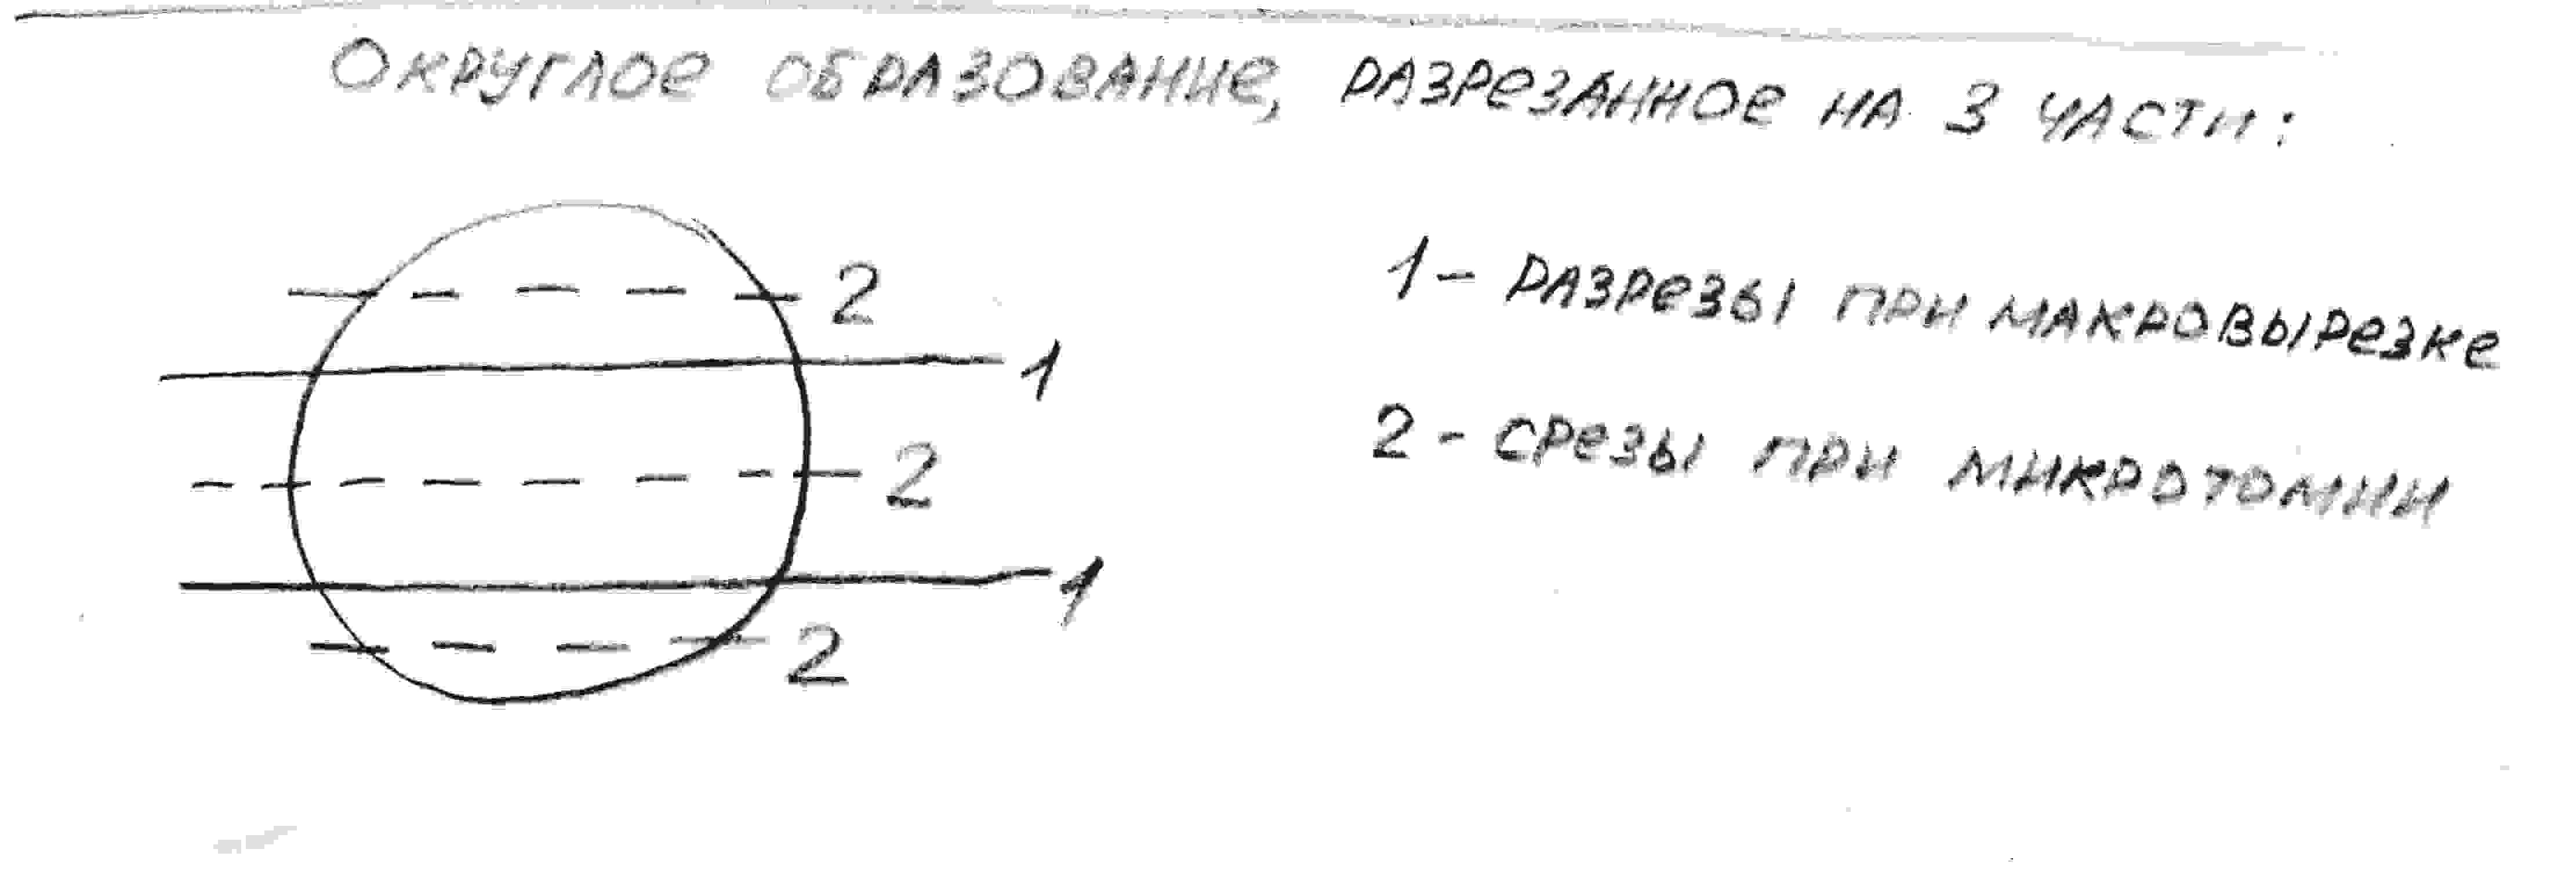 Округлое образование, разрезанное на 3 части:
2
1 - разрезы при макровырезке
1
2 - срезы при микротомии
2
1
2